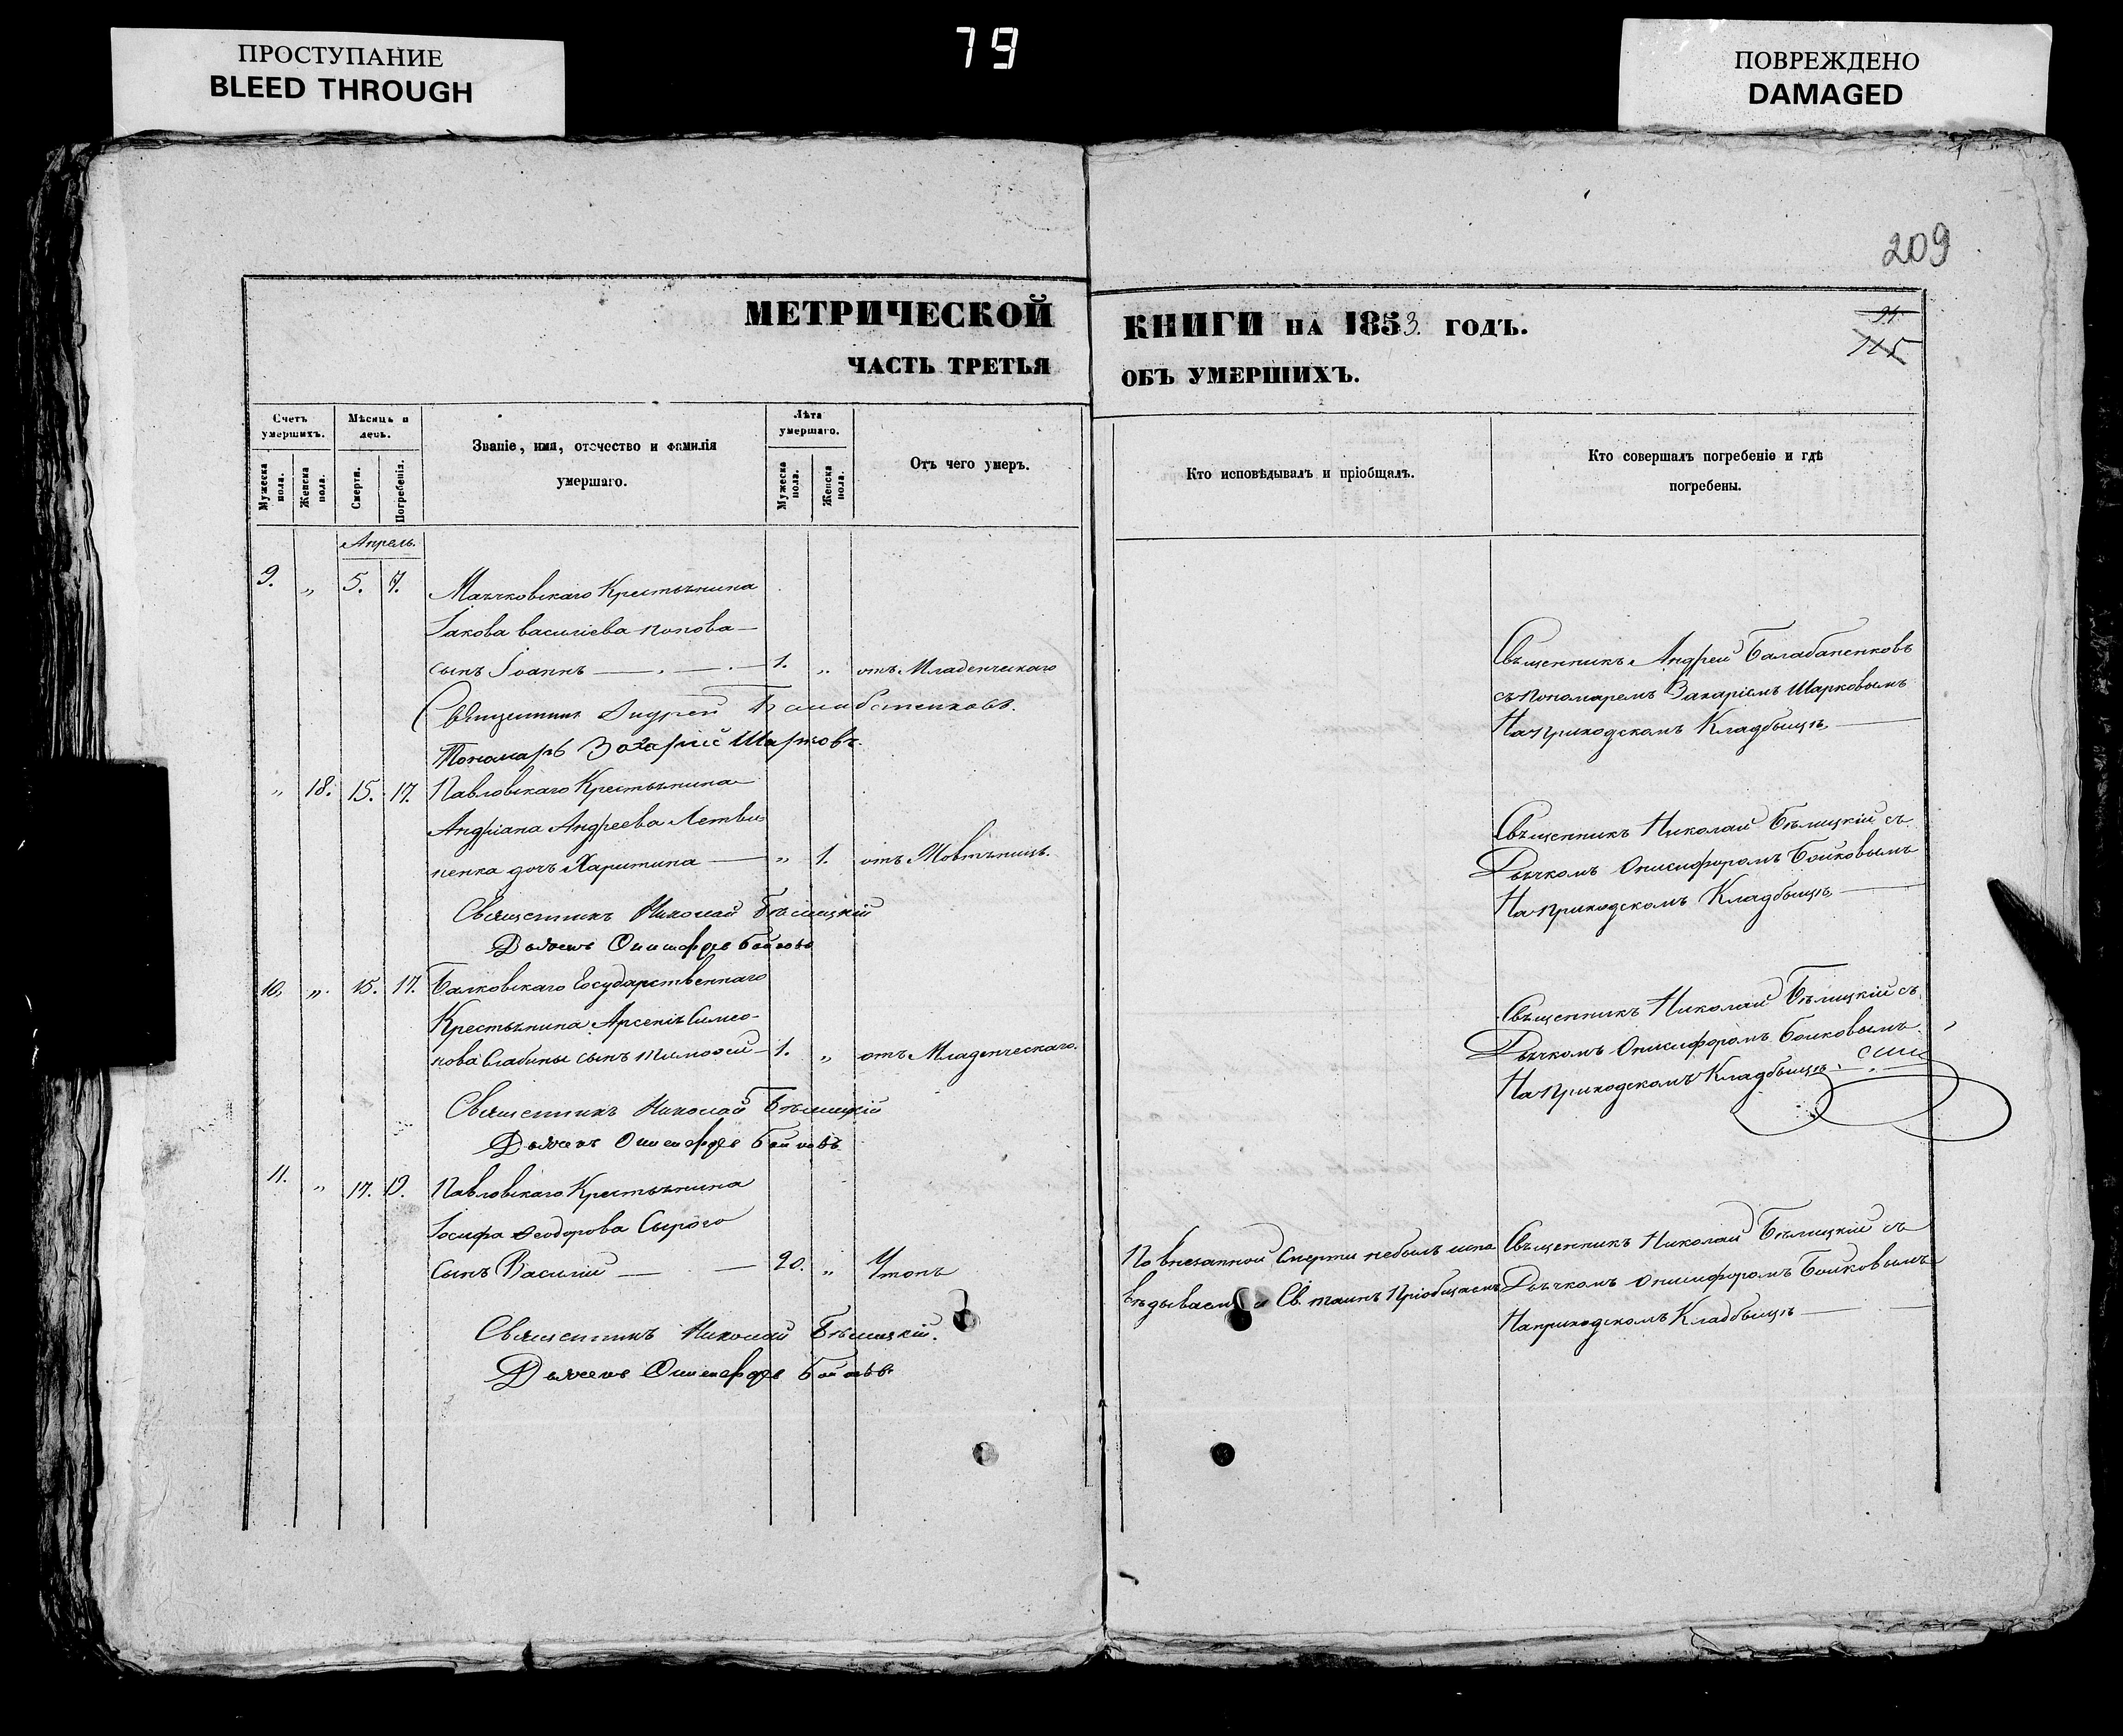 ПРОСТУПАНИЕ
BLEED THROUGH
79
ПОВРЕЖДЕНО
DAMAGED
209
МЕТРИЧЕСКОЙ
ЧАСТЬ ТРЕТЬЯ
КНИГИ НА 1853. ГОДЪ.
ОБЪ УМЕРШИХЪ.
115
Счетъ умершихъ.
Мужеска пола.
Женска пола.
Мѣсяцъ и день.
Смерти.
Погребенія.
Званіе, имя, отечество и фамилія
умершаго.
Лѣта умершаго.
Мужеска пола.
Женска пола.
Отъ чего умеръ.
Кто исповѣдывалъ и пріобщалъ.
Кто совершалъ погребеніе и гдѣ
погребены.
Апрель.
9. „ 5. 7. Маячковскаго Крестьянина
Іакова Василіева Попова
сынъ Іоаннъ 1. „ отъ Младенческаго
Священникъ Андрей Балабаненковъ
съ пономаремъ Захаріемъ Шарковымъ
На приходскомъ Кладбищѣ
Священникъ Андрей Балабаненковъ.
Пономарь Захарій Шарковъ.
„ 18. 15. 17. Павловскаго Крестьянина
Андріана Андреева Летви-
ненка дочь Харитина „ 1. отъ Жовтяницъ.
Священникъ Николай Бѣлицкій съ
Дьячкомъ Онисифоромъ Бойковымъ
На приходскомъ Кладбищѣ
Священникъ Николай Бѣлицкій
Дьячекъ Онисифоръ Бойковъ
10. „ 15. 17. Балковскаго Государственнаго
Крестьянина Арсенія Симео-
нова Слабины сынъ Тимофей 1. „ отъ Младенческаго.
Священникъ Николай Бѣлицкій съ
Дьячкомъ Онисифоромъ Бойковымъ
На приходскомъ Кладбищѣ.
Священникъ Николай Бѣлицкій
Дьячекъ Онисифоръ Бойковъ
11. „ 17. 19. Павловскаго Крестьянина
Іосифа Феодорова Сырого
Сынъ Василій 20. „ Утопъ
По внезапной Смерти небылъ испо
вѣдываемъ и Св. таинъ Пріобщаемъ
Священникъ Николай Бѣлицкій съ
Дьячкомъ Онисифоромъ Бойковымъ
На приходскомъ Кладбищѣ
Священникъ Николай Бѣлицкій.
Дьячекъ Онисифоръ Бойковъ.